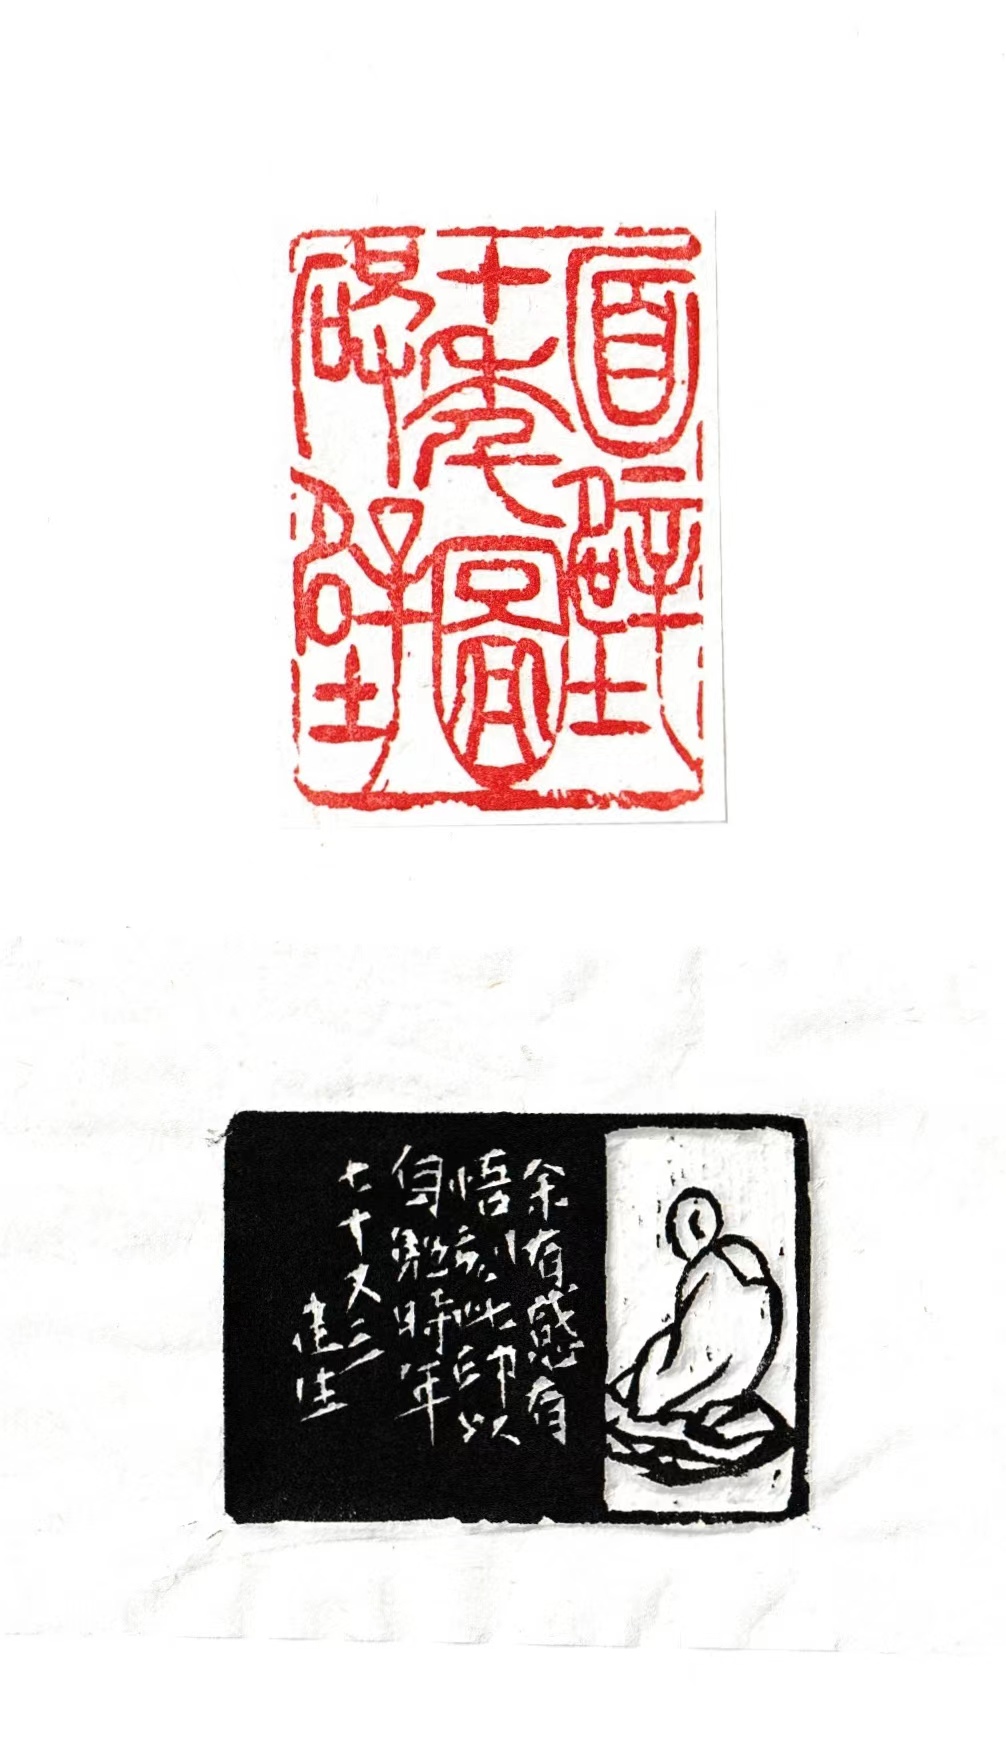 面壁
十年圖
破壁
余有感有
悟刻此印以
自勉時年
七十又三
生